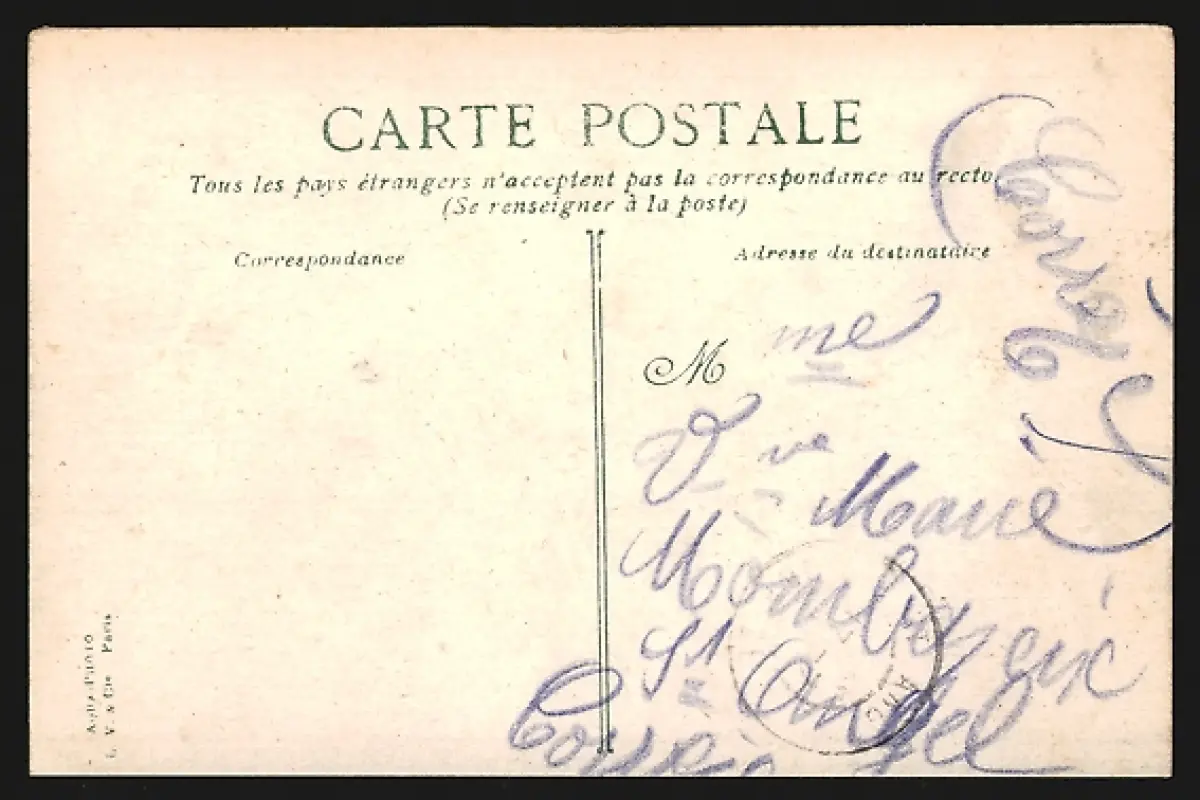 CARTE POSTALE
Tous les pays étrangers n'acceptent pas la correspondance au recto.
(Se renseigner à la poste)
Correspondance
Adresse du destinataire
M me
Vve Marie
St Angel
Corrèze
Aqua-Photo
L. V. & Cie Paris